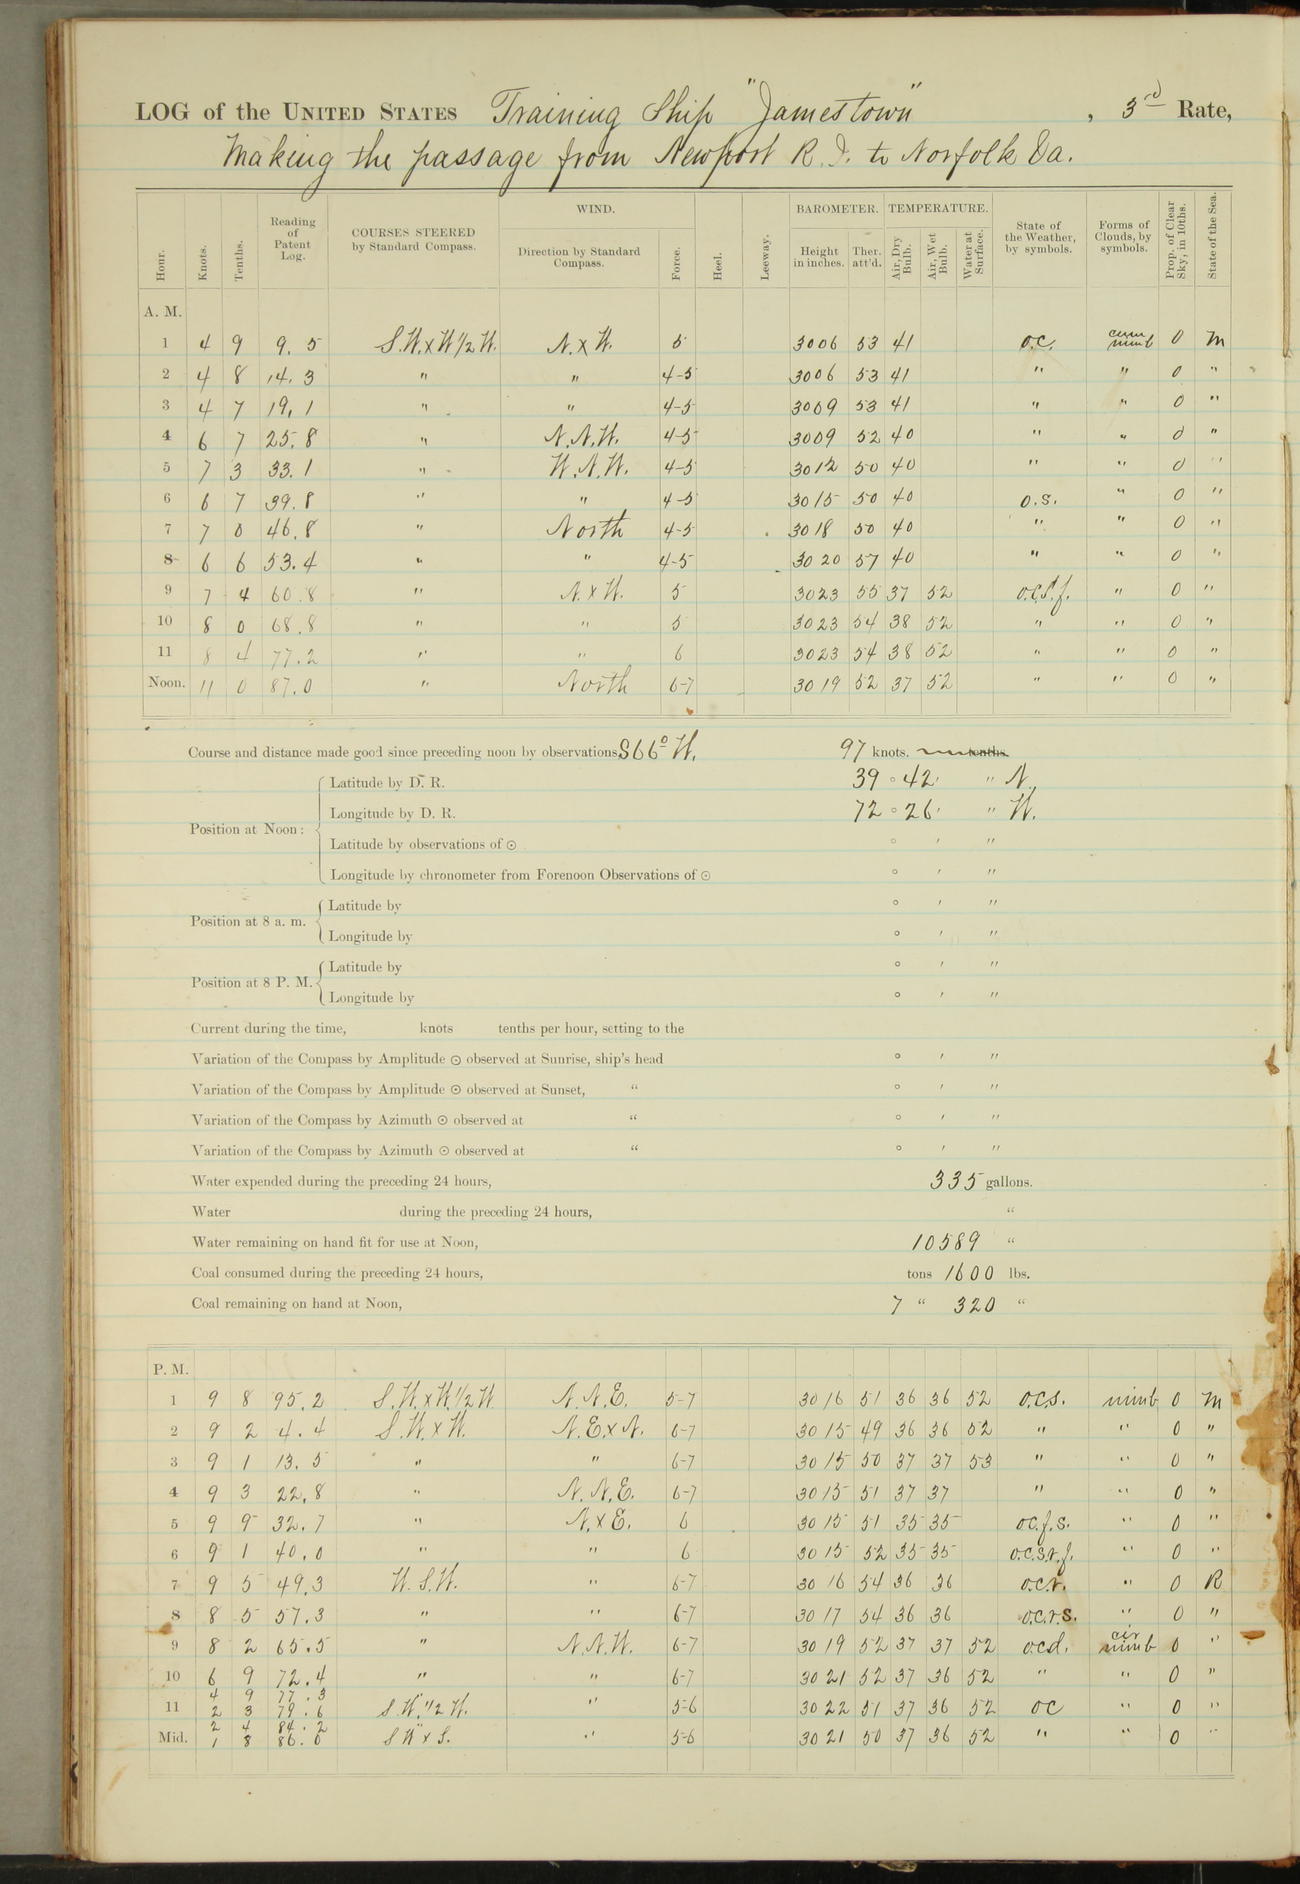 LOG of the UNITED STATES Training Ship "Jamestown", 3rd Rate,
Making the passage from Newport R.I. to Norfolk Va.
Hour. Knots. Tenths. Reading of Patent Log. COURSES STEERED by Standard Compass. WIND. Direction by Standard Compass. Force. Heel. Leeway. BAROMETER. Height in inches. Ther. att'd. TEMPERATURE. Air, Dry Bulb. Air, Wet Bulb. Water at Surface. State of the Weather, by symbols. Forms of Clouds, by symbols. Prop. of Clear Sky, in 10ths. State of the Sea.
A. M.
1 4 9 9.5 S.W.xW1/2W. N.xW. 5 3006 53 41 o.c. cum nimb 0 M
2 4 8 14.3 " " 4-5 3006 53 41 " " 0 "
3 4 7 19.1 " " 4-5 3009 53 41 " " 0 "
4 6 7 25.8 " N.N.W. 4-5 3009 52 40 " " 0 "
5 7 3 33.1 " W.N.W. 4-5 3012 50 40 " " 0 "
6 6 7 39.8 " " 4-5 3015 50 40 o.s. " 0 "
7 7 0 46.8 " North 4-5 3018 50 40 " " 0 "
8 6 6 53.4 " " 4-5 3020 57 40 " " 0 "
9 7 4 60.8 " N.xW. 5 3023 55 37 52 o.c.s.f. " 0 "
10 8 0 68.8 " " 5 3023 54 38 52 " " 0 "
11 8 4 77.2 " " 6 3023 54 38 52 " " 0 "
Noon. 11 0 87.0 " North 6-7 3019 52 37 52 " " 0 "
Course and distance made good since preceding noon by observations S66°W. 97 knots. tenths.
Position at Noon: Latitude by D. R. 39 ° 42 ' " N.
Longitude by D. R. 72 ° 26 ' " W.
Latitude by observations of ☉ ° ' "
Longitude by chronometer from Forenoon Observations of ☉ ° ' "
Position at 8 a. m. Latitude by ° ' "
Longitude by ° ' "
Position at 8 P. M. Latitude by ° ' "
Longitude by ° ' "
Current during the time, knots tenths per hour, setting to the
Variation of the Compass by Amplitude ☉ observed at Sunrise, ship's head ° ' "
Variation of the Compass by Amplitude ☉ observed at Sunset, " ° ' "
Variation of the Compass by Azimuth ☉ observed at " ° ' "
Variation of the Compass by Azimuth ☉ observed at " ° ' "
Water expended during the preceding 24 hours, 335 gallons.
Water during the preceding 24 hours, "
Water remaining on hand fit for use at Noon, 10589 "
Coal consumed during the preceding 24 hours, tons 1600 lbs.
Coal remaining on hand at Noon, 7 " 320 "
P. M.
1 9 8 95.2 S.W.xW.1/2W. N.N.E. 5-7 3016 51 36 36 52 o.c.s. nimb 0 M
2 9 2 4.4 S.W.xW. N.E.xN. 6-7 3015 49 36 36 52 " " 0 "
3 9 1 13.5 " " 6-7 3015 50 37 37 53 " " 0 "
4 9 3 22.8 " N.N.E. 6-7 3015 51 37 37 " " 0 "
5 9 9 32.7 " N.xE. 6 3015 51 35 35 oc.f.s. " 0 "
6 9 1 40.0 " " 6 3015 52 35 35 o.c.s.r.f. " 0 "
7 9 5 49.3 W.S.W. " 6-7 3016 54 36 36 o.c.r. " 0 R
8 8 5 57.3 " " 6-7 3017 54 36 36 o.c.r.s. " 0 "
9 8 2 65.5 " N.N.W. 6-7 3019 52 37 37 52 o.c.d. cir nimb 0 "
10 6 9 72.4 " " 6-7 3021 52 37 36 52 " " 0 "
4 9 77.3 "
11 2 3 79.6 S.W.1/2W. " 5-6 3022 51 37 36 52 oc " 0 "
2 4 84.2 "
Mid. 1 8 86.0 SWxS. " 5-6 3021 50 37 36 52 " " 0 "